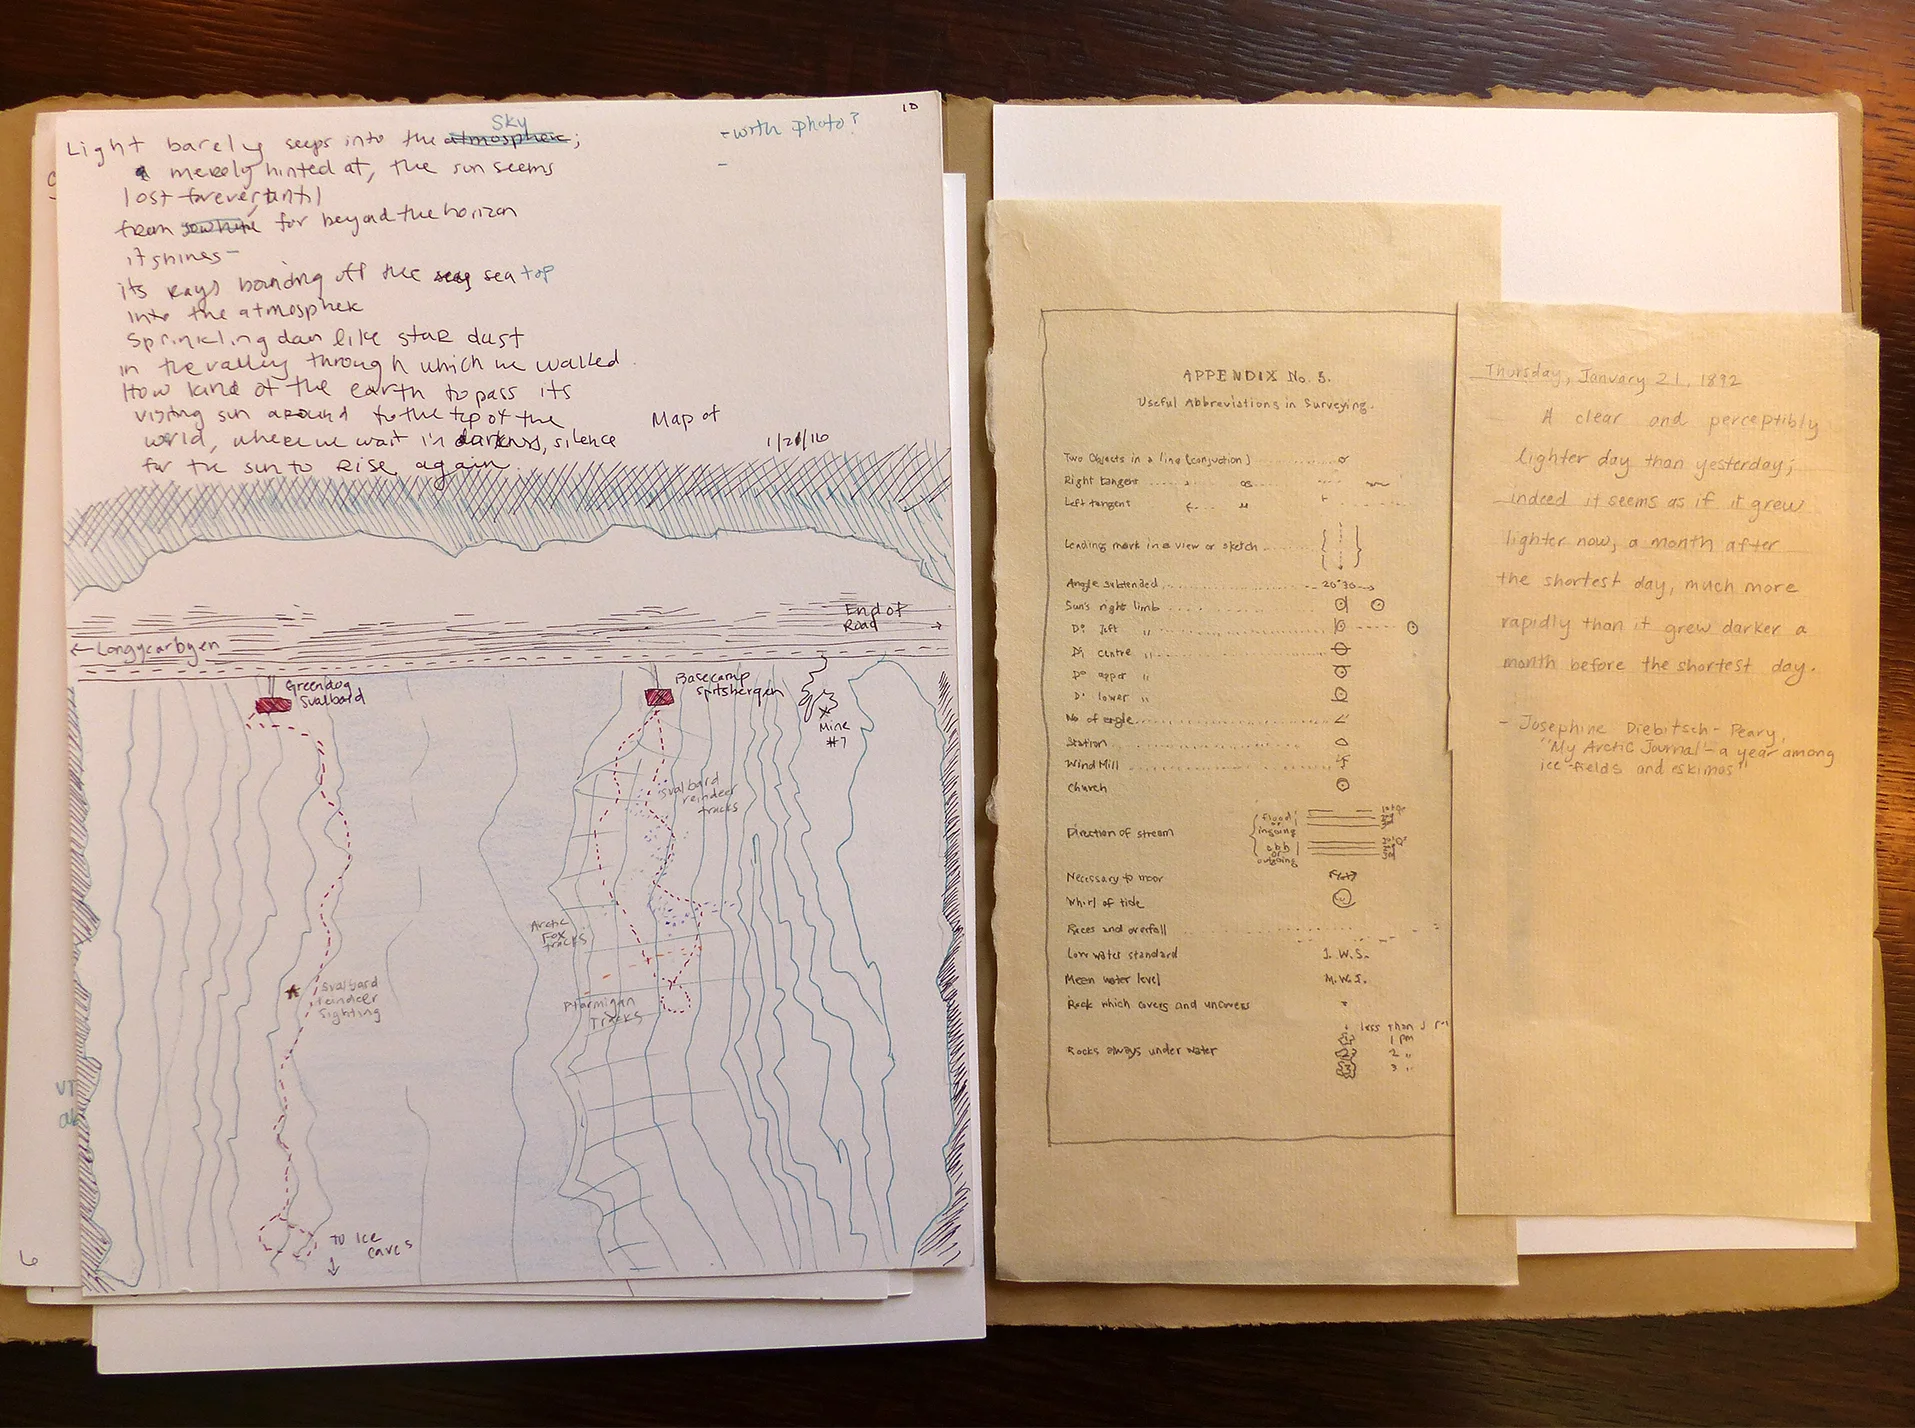 10
Light barely seeps into the atmosphere; sky
merely hinted at, the sun seems
lost forever, until
from far beyond the horizon
it shines —
its rays bounding off the sea top
into the atmosphere
sprinkling down like star dust
in the valley through which we walked.
How kind of the earth to pass its
visiting sun around to the top of the
world, where we wait in darkness, silence
for the sun to rise again.
- with photo?
-
Map of
1/21/16
End of
Road
← Longyearbyen
Greendog
Svalbard
Basecamp
Spitsbergen
Mine
#7
Svalbard
reindeer
tracks
Arctic
Fox
tracks
Svalbard
reindeer
sighting
Ptarmigan
Tracks
to Ice
caves
6
APPENDIX No. 5.
Useful Abbreviations in Surveying.
Two Objects in a line (conjuction)
Right tangent
Left tangent
Leading mark in a view or sketch
Angle subtended 20°30
Sun's right limb
D° left "
D° centre "
D° upper "
D° lower "
No of angle
Station
Wind Mill
Church
Direction of stream
flood
or
ingoing
ebb
or
outgoing
Necessary to moor
Whirl of tide
Races and overfall
Low water standard L.W.S.
Mean water level M.W.L.
Rock which covers and uncovers
Rocks always under water
less than 1
1 fm
2 "
3 "
Thursday, January 21, 1892
A clear and perceptibly
lighter day than yesterday;
indeed it seems as if it grew
lighter now, a month after
the shortest day, much more
rapidly than it grew darker a
month before the shortest day.
- Josephine Diebitsch-Peary,
"My Arctic Journal - a year among
ice-fields and eskimos"